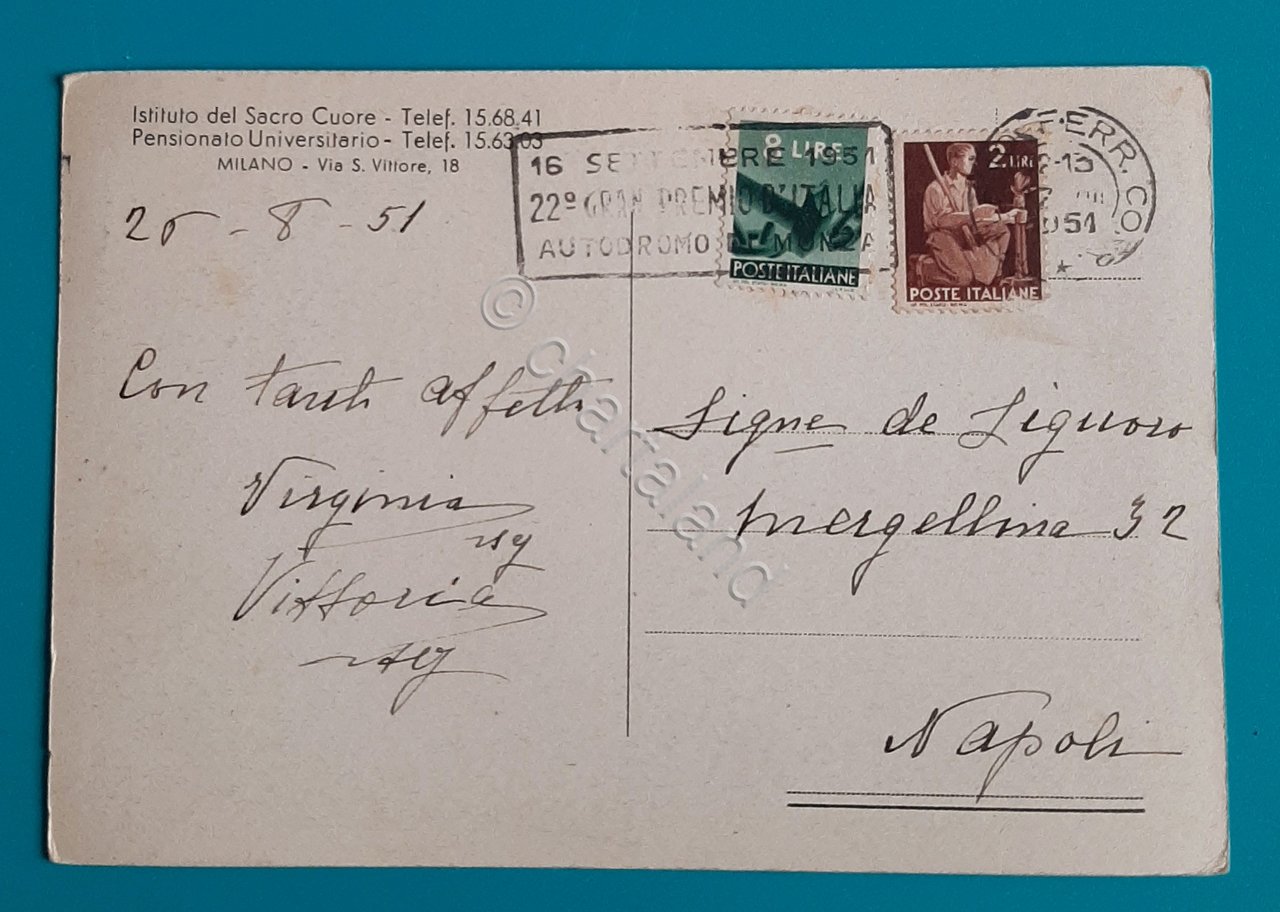 Istituto del Sacro Cuore - Telef. 15.68.41
Pensionato Universitario - Telef. 15.63.03
MILANO - Via S. Vittore, 18
16 SETTEMBRE 1951
22º GRAN PREMIO D'ITALIA
AUTODROMO DI MONZA
8 LIRE
POSTE ITALIANE
2 LIRE
POSTE ITALIANE
FERR. CO
1951
- 8 - 51
Con tanti affetti
Virginia
Vittoria
Signe de Liguoro
Mergellina 32
Napoli
© chartaland